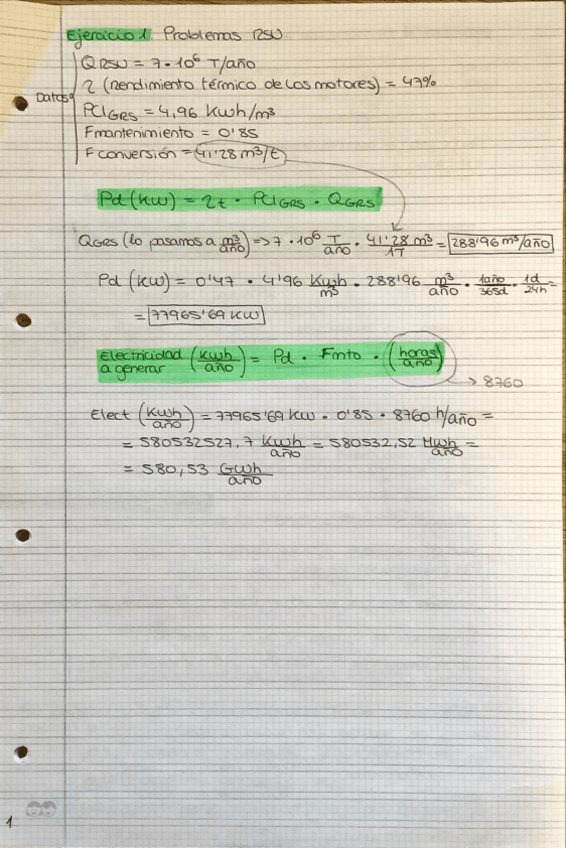 Ejercicio 1 Problemas RSU.
QRSU = 7·10⁶ T/año
η (rendimiento térmico de los motores) = 47%
Datos
PCIGRS = 4,96 Kwh/m³
Fmantenimiento = 0'85
Fconversión = 41'28 m³/t
Pd (kw) = ηt · PCIGRS · QGRS
QGRS (lo pasamos a m³/año) => 7·10⁶ T/año · 41'28 m³/1T = 288'96 m³/año
Pd (kw) = 0'47 · 4'96 Kwh/m³ · 288'96 m³/año · 1año/365d · 1d/24h =
= 77965'69 KW
Electricidad a generar (Kwh/año) = Pd · Fmto · (horas/año)
→ 8760
Elect (Kwh/año) = 77965'69 KW · 0'85 · 8760 h/año =
= 580532527,7 Kwh/año = 580532,52 Mwh/año =
= 580,53 Gwh/año
1